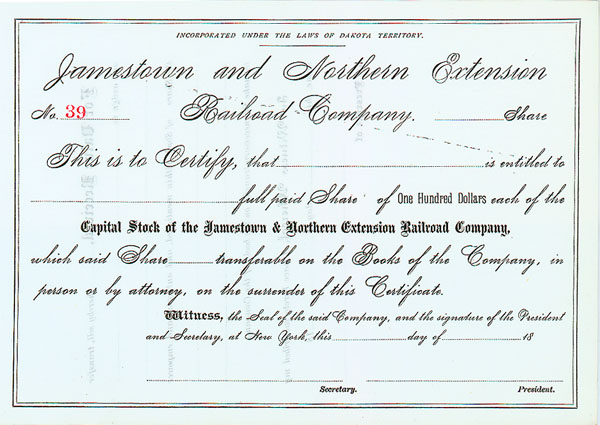 INCORPORATED UNDER THE LAWS OF DAKOTA TERRITORY.
Jamestown and Northern Extension
No. 39 Railroad Company. Share
This is to Certify, that is entitled to
full paid Share of One Hundred Dollars each of the
Capital Stock of the Jamestown & Northern Extension Railroad Company,
which said Share transferable on the Books of the Company, in
person or by attorney, on the surrender of this Certificate.
Witness, the Seal of the said Company, and the signature of the President
and Secretary, at New York, this day of 18
Secretary. President.